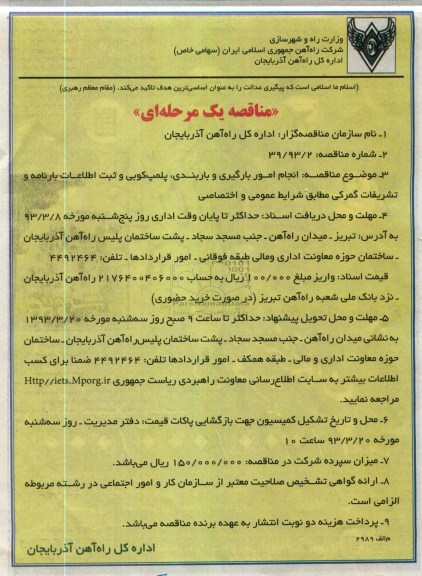 وزارت راه و شهرسازی
شرکت راه‌آهن جمهوری اسلامی ایران (سهامی خاص)
اداره کل راه‌آهن آذربایجان
(اسلام ما اسلامی است که پیگیری عدالت را به عنوان اساسی‌ترین هدف تاکید می‌کند. (مقام معظم رهبری)
«مناقصه یک مرحله‌ای»
۱ـ نام سازمان مناقصه‌گزار: اداره کل راه‌آهن آذربایجان
۲ـ شماره مناقصه: ۳۹/۹۳/۲
۳ـ موضوع مناقصـه: انجام امـور بارگیری و باربنـدی، پلمپ‌کوبی و ثبت اطلاعـات بارنامه و
تشریفات گمرکی مطابق شرایط عمومی و اختصاصی
۴ـ مهلت و محل دریافت اسـناد: حداکثر تا پایان وقت اداری روز پنج‌شـنبه مورخه ۹۳/۳/۸
به آدرس: تبریز ـ میدان راه‌آهن ـ جنب مسجد سجاد ـ پشت ساختمان پلیس راه‌آهن آذربایجان
ـ ساختمان حوزه معاونت اداری ومالی طبقه فوقانی ـ امور قراردادها ـ تلفن: ۴۴۹۲۴۶۴
قیمت اسناد: واریز مبلغ ۱۰۰/۰۰۰ ریال به حساب ۲۱۷۶۴۰۰۴۰۶۰۰۰ راه‌آهن آذربایجان
ـ نزد بانک ملی شعبه راه‌آهن تبریز (در صورت خرید حضوری)
۵ـ مهلت و محل تحویل پیشنهاد: حداکثر تا ساعت ۹ صبح روز سه‌شنبه مورخه ۱۳۹۳/۳/۲۰
به نشانی میدان راه‌آهن ـ جنب مسجد سجاد ـ پشت ساختمان پلیس‌راه‌آهن آذربایجان ـ ساختمان
حوزه معاونت اداری و مالی ـ طبقه همکف ـ امور قراردادها تلفن: ۴۴۹۲۴۶۴ ضمنا برای کسب
اطلاعات بیشتر به سـایت اطلاع‌رسانی معاونت راهبردی ریاست جمهوری Http//iets.Mporg.ir
مراجعه نمایید.
۶ـ محل و تاریخ تشکیل کمیسیون جهت بازگشایی پاکات قیمت: دفتر مدیریت ـ روز سه‌شنبه
مورخه ۹۳/۳/۲۰ ساعت ۱۰
۷ـ میزان سپرده شرکت در مناقصه: ۱۵۰/۰۰۰/۰۰۰ ریال می‌باشد.
۸ـ ارائه گواهی تشـخیص صلاحیت معتبر از سازمان کار و امور اجتماعی در رشـته مربوطه
الزامی است.
۹ـ پرداخت هزینه دو نوبت انتشار به عهده برنده مناقصه می‌باشد.
م‌الف ۲۹۸۹
اداره کل راه‌آهن آذربایجان